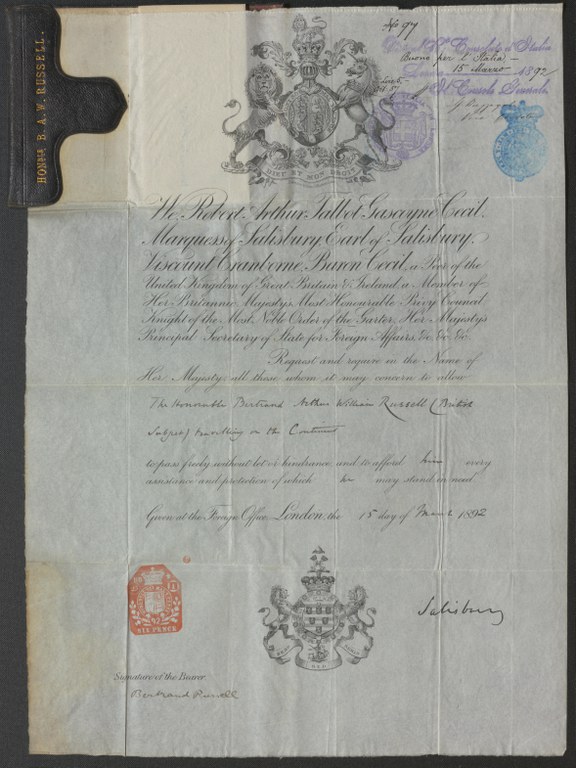 HONBLE B. A. W. RUSSELL.
No 97
Consolato d'Italia
Buono per l'Italia -
15 Marzo 1892
Il Console Generale
DIEU ET MON DROIT
We, Robert Arthur Talbot Gascoyne Cecil,
Marquess of Salisbury, Earl of Salisbury,
Viscount Cranborne, Baron Cecil, a Peer of the
United Kingdom of Great Britain & Ireland, a Member of
Her Britannic Majesty's Most Honourable Privy Council
Knight of the Most Noble Order of the Garter, Her Majesty's
Principal Secretary of State for Foreign Affairs, &c. &c. &c.
Request and require in the Name of
Her Majesty, all those whom it may concern to allow
The Honourable Bertrand Arthur William Russell (British
Subject) travelling on the Continent
to pass freely without let or hindrance, and to afford him every
assistance and protection of which he may stand in need.
Given at the Foreign Office, London, the 15 day of March 1892
SIX PENCE
SERO SED
Salisbury
Signature of the Bearer.
Bertrand Russell